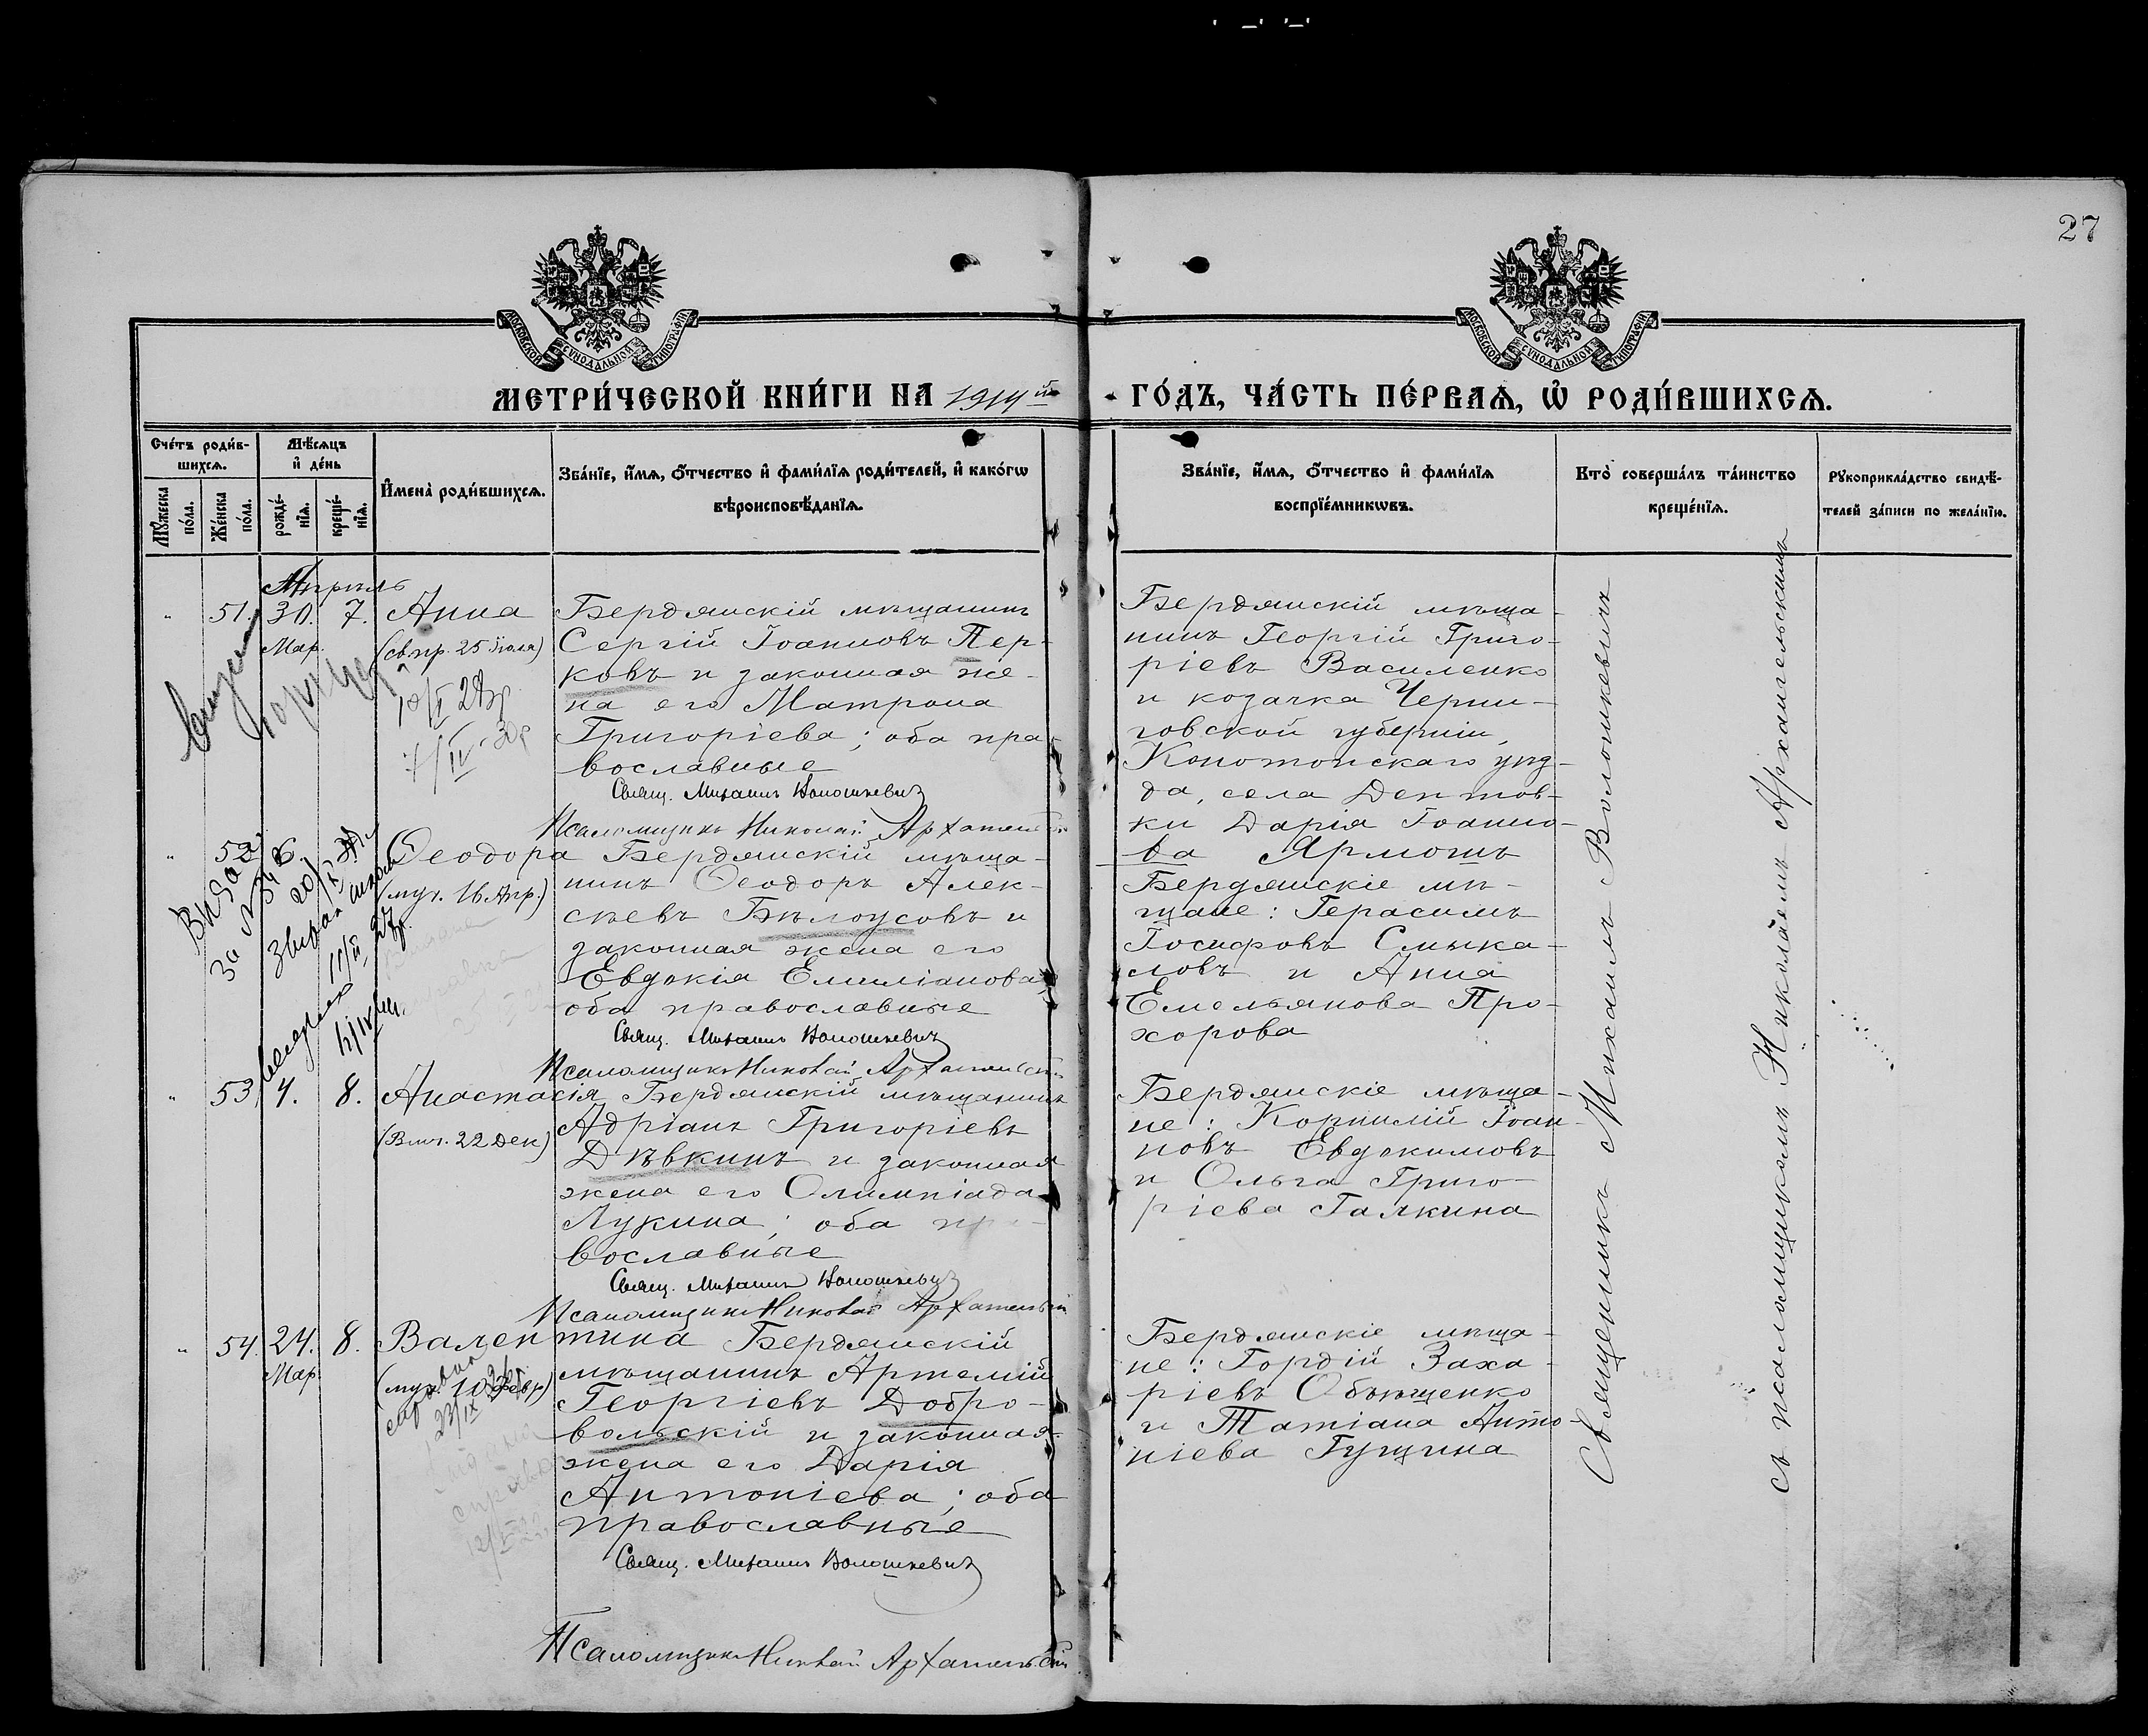 27
МОСКОВСКОЙ СѴНОДАЛЬНОЙ ТИПОГРАФІИ
МОСКОВСКОЙ СѴНОДАЛЬНОЙ ТИПОГРАФІИ
МЕТРИ́ЧЕСКОЙ КНИ́ГИ НА 1914й ГО́ДЪ, ЧА́СТЬ ПЕ́РВАѦ, Ѡ҆ РОДИ́ВШИХСѦ.
Сче́тъ роди́в-
шихсѧ.
Мꙋ́жеска
по́ла.
Же́нска
по́ла.
Мѣ́сѧцъ
и҆ де́нь
рожде́-
нїѧ.
креще́-
нїѧ.
И҆мена̀ роди́вшихсѧ.
Зва́нїе, и҆́мѧ, ѻ҆́тчество и҆ фами́лїѧ роди́телей, и҆ како́гѡ
вѣроисповѣ́данїѧ.
Зва́нїе, и҆́мѧ, ѻ҆́тчество и҆ фами́лїѧ
воспрїе́мникѡвъ.
Кто̀ соверша́лъ та́инство
креще́нїѧ.
Рꙋкоприкла́дство свидѣ́-
телей за́писи по жела́нїю.
Апрѣль
" 51. 30. 7. Анна
Мар. (св. пр. 25 Іюля)
Бердянскій мѣщанинъ
Сергій Іоанновъ Пер-
ковъ и законная же-
на его Матрона
Григоріева; оба пра-
вославные
Свящ. Михаилъ Волошкевичъ
Псаломщикъ Николай Архангельскій
Бердянскій мѣща-
нинъ Георгій Григо-
ріевъ Василенко
и козачка Черни-
говской губерніи,
Конотопскаго уѣз-
да, села Дептов-
ки Дарія Іоанно-
ва Ярмошъ
" 52 Ѳеодора
(муч. 16 Апр.)
Бердянскій мѣща-
нинъ Ѳеодоръ Алек-
сѣевъ Бѣлоусовъ и
законная жена его
Евдокія Емиліанова;
оба православные
Свящ. Михаилъ Волошкевичъ
Псаломщикъ Николай Архангельскій
Бердянскіе мѣ-
щане: Герасимъ
Іосифовъ Смыка-
ловъ и Анна
Емельянова Про-
хорова
" 53 4. 8. Анастасія
(Влмч. 22 Дек)
Бердянскій мѣщанинъ
Адріанъ Григоріевъ
Дѣвкинъ и законная
жена его Олимпіада
Лукина; оба пра-
вославные
Свящ. Михаилъ Волошкевичъ
Псаломщикъ Николай Архангельскій
Бердянскіе мѣща-
не: Корнилій Іоан-
новъ Евдокимовъ
и Ольга Григо-
ріева Галкина
" 54. 24. 8. Валентина
Мар. (муч. 10 Февр)
Бердянскій
мѣщанинъ Артемій
Георгіевъ Добро-
вольскій и законная
жена его Дарія
Антоніева; оба
православные
Свящ. Михаилъ Волошкевичъ
Псаломщикъ Николай Архангельскій
Бердянскіе мѣща-
не: Гордій Заха-
ріевъ Обѣщенко
и Татіана Анто-
ніева Гущина
Священникъ Михаилъ Волошкевичъ
съ псаломщикомъ Николаемъ Архангельскимъ